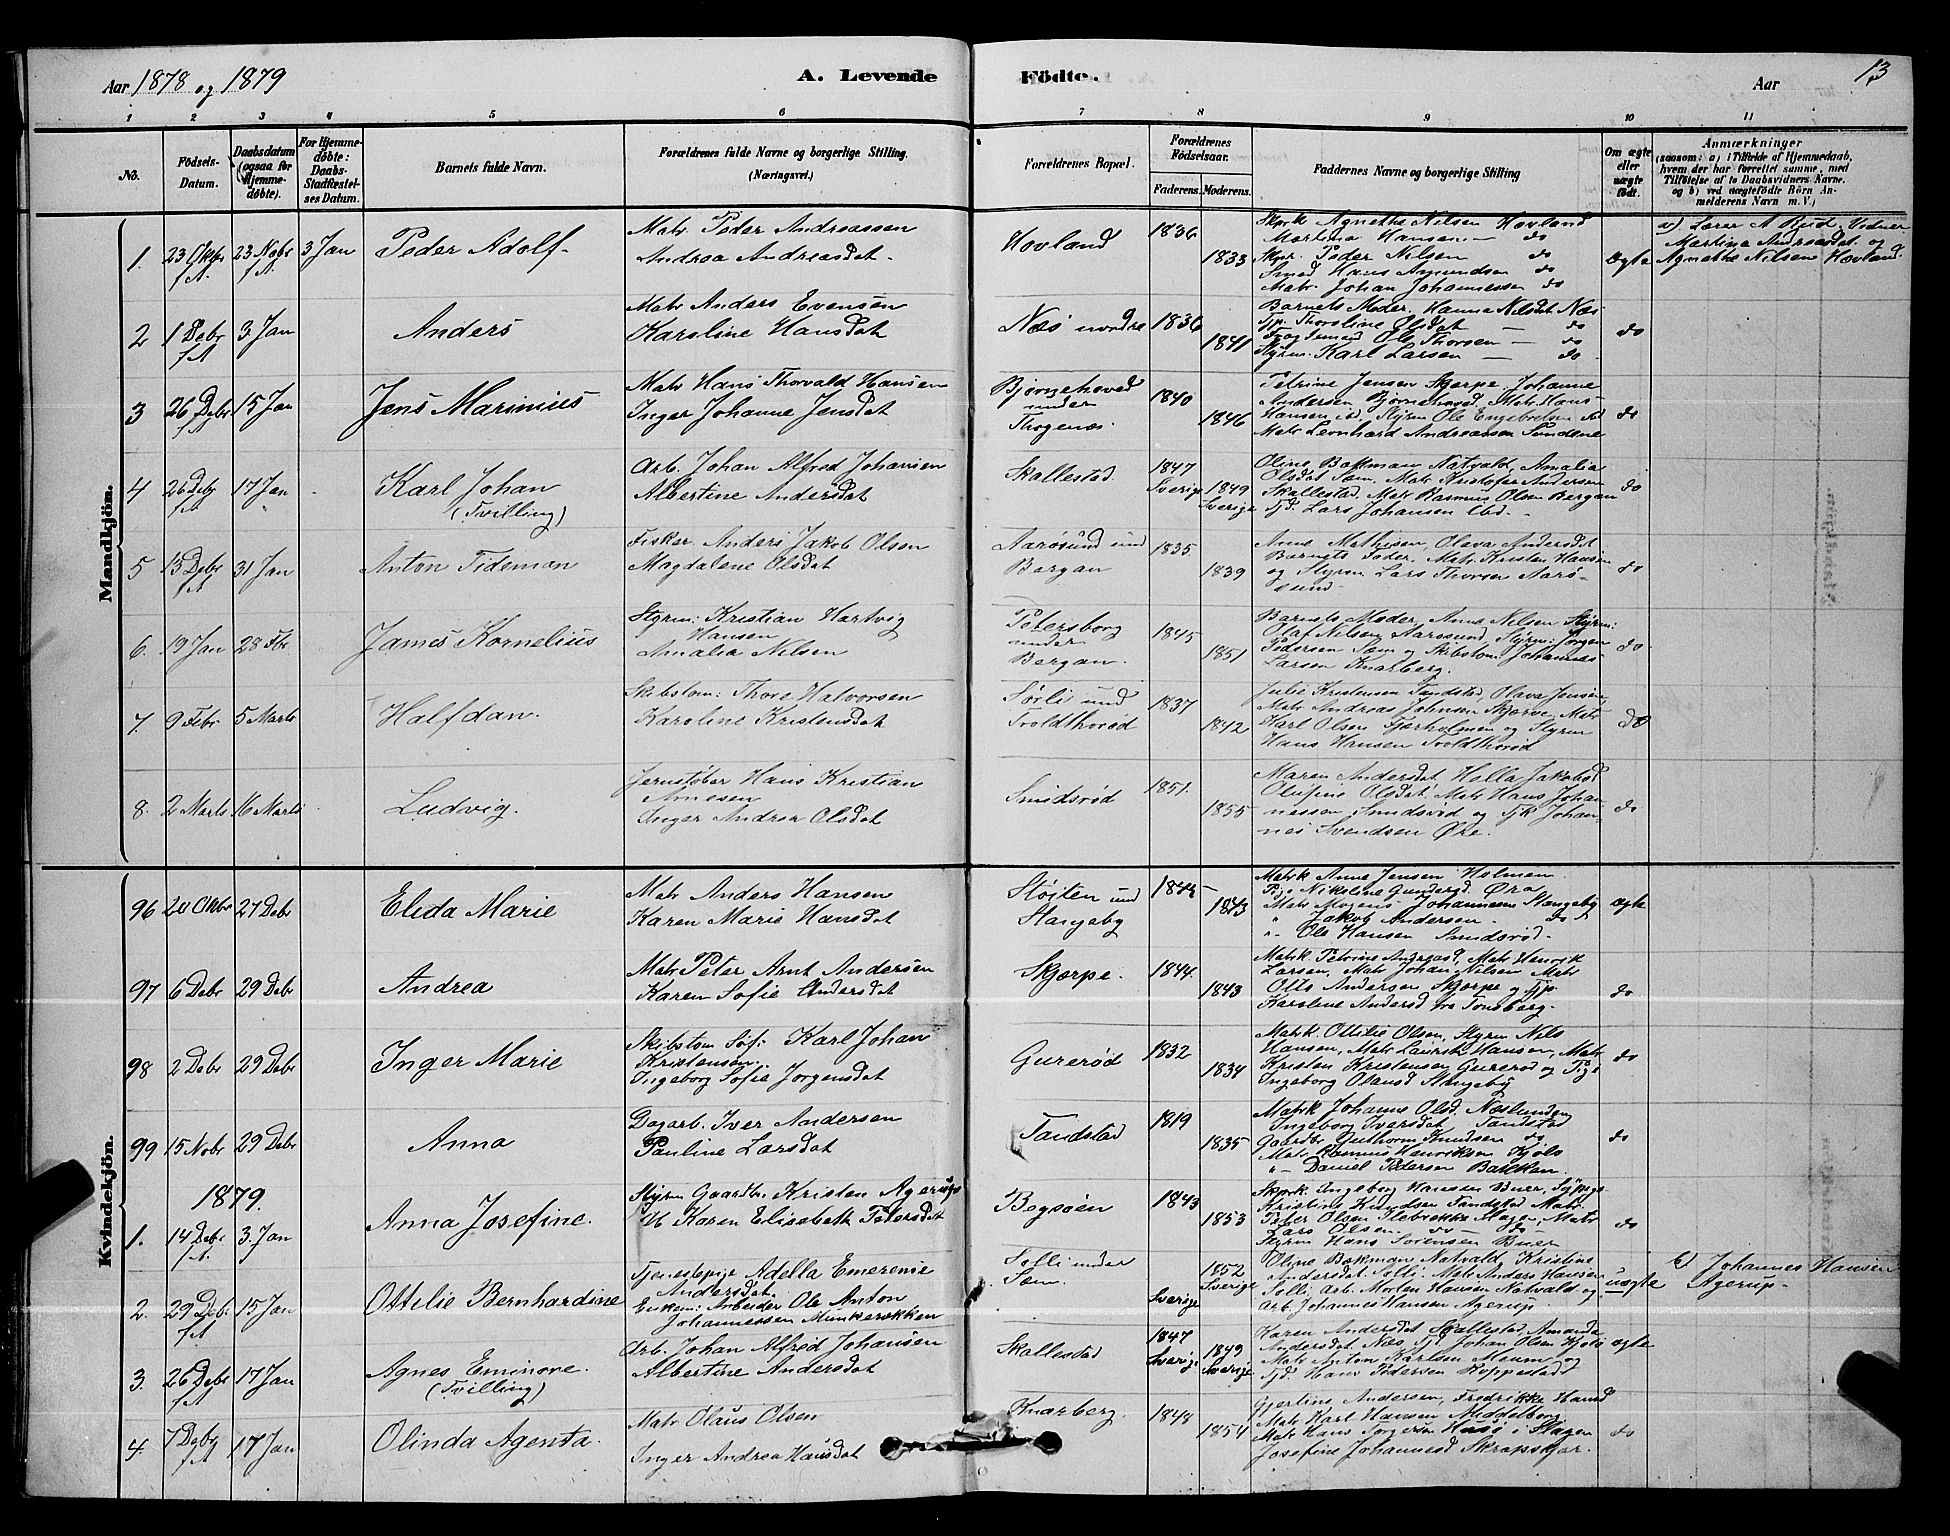 Aar 1878 og 1879
A. Levende Födte.
Aar 13
1 2 3 4 5 6 7 8 9 10 11
No.
Födsels-Datum.
Daabsdatum (ogsaa for Hjemme-döbte).
For Hjemme-döbte: Daabs-Stadfæstel-ses Datum.
Barnets fulde Navn.
Forældrenes fulde Navne og borgerlige Stilling. (Næringsvei.)
Forældrenes Bopæl.
Forældrenes Födselsaar.
Faderens. Moderens.
Faddernes Navne og borgerlige Stilling
Om ægte eller uægte födt.
Anmærkninger
(saasom: a) i Tilfælde af Hjemmedaab, hvem der har forrettet samme, med Tilföielse af to Daabsvidners Navne, og b) ved uægtefödte Börn An-melderens Navn m. V.)
Mandkjön.
1. 23 Oktbr f.A. 23 Nobr f.A. 3 Jan Peder Adolf
Matr. Peder Andreassen
Andrea Andreasdat.
Hovland 1836 1833
Skprk Agnethe Nilsen Hovland
Martina Hansen — do
Skpr. Peder Nilsen do
Smed Hans Amundsen do
Matr. Johan Johannessen do
Ægte
a) Lærer A Reid. Vidner
Martina Andreasdat og
Agnethe Nilsen Hovland.
2 1 Debr f.A 3 Jan Anders
Matr Anders Evensen
Karoline Hansdat
Næs nordre 1836 1841
Barnets Moder, Hanna Nilsdat Næs
Tjp. Thoroline Olsdat — do
Ole Thorsen — do
Styrm. Karl Larsen — do
do
3 26 Debr f.A 15 Jan Jens Marinius
Matr Hans Thorvald Hansen
Inger Johanne Jensdat
Bjørnehoved
under
Thogenæs.
1840 1846
Petrine Jensen Skjerpe, Johanne
Andersen Bjørnehoved, Matr. Hans
Hansen ibd, Styrm Ole Engebretsen ibd
Matr Leonhard Andreassen Sundene
do
4 26 Debr f.A 17 Jan Karl Johan
(Tvilling)
Arb. Johan Alfred Johansen
Albertine Andersdat
Skallestad 1847 Sverige 1849 Sverige
Oline Bakman Natvald, Amalia
Olsdat Sem, Matr Kristofer Andersen
Skallestad, Matr Rasmus Olsen Bergan
Tjd. Lars Johansen ibd. -
do
5 13 Debr f.A 31 Jan Anton Tideman
Fisker Anders Jakob Olsen
Magdalene Olsdat
Aarøsund und
Bergan
1835. 1839
Anne Mathisen, Olava Andersdat
Barnets Fader, Matr Kristen Hansen
og Styrm Lars Thorsen Aarø-
sund
do
6. 19 Jan 28 Fbr James Kornelius
Styrm: Kristian Hartvig
Hansen
Amalia Nilsen
Petersborg
under
Bergan.
1845 1851
Barnets Moder, Anna Nilsen Styrm:
Olaf Nilsen Aarøsund, Styrm: Jørgen
Pedersen Sem og Skibstom: Johannes
Larsen Knarberg.
do
7. 9 Febr 5 Marts Halfdan.
Skibstom: Thore Halvorsen
Karoline Kristensdat
Sørli und
Troldthorød
1837 1842
Julie Kristensen Tandstad, Olava Jensen,
Matr Andreas Johnsen Skjerve, Matr
Karl Olsen Fjærholmen og Styrm
Hans Hansen Troldthorød
do
8. 2 Marts 16 Marts Ludvig.
Jernstøber Hans Kristian
Arnesen
Inger Andrea Olsdat
Smidsrød 1851. 1855
Maren Andersdat Holla Jakobsd
Olufine Olsdat, Matr Hans Johan-
nessen Smidsrød og TjK Johan-
nes Svendsen Øre.
do
Kvindekjön.
96 20 Oktbr 27 Debr Elida Marie
Matr Anders Hansen
Karen Marie Hansdat
Støiten und
Stangeby
1843
Matrk Anne Jensen Holmen
Pige Nikoline Gundersd Øra
Matr Mogens Johannesen Stangeby
" Jakob Andersen. do
" Ole Hansen Smidsrød.
ægte
97 6 Debr 29 Debr Andrea
Matr Peter Arnt Andersen
Karen Sofie Andersdat
Skjerpe. 1844. 1843
Matrk Petrine Andreasd, Matr Henrik
Larsen, Matr Johan Nilsen Matr
Otto Andersen Skjerpe og Tjp.
Karoline Andersd fra Tønsberg.
do
98 2 Debr 29 Debr Inger Marie
Skibstom Søf: Karl Johan
Kristensen.
Ingeborg Sofie Jørgensdat
Gurerød 1832 1834
Matrk Ottilie Olsen, Styrm Nils
Hansen, Matr Laurits Hansen, Matr
Kristen Kristensen Gurerød og Pige
Ingeborg Olausd Stangeby
do
99 15 Nobr 29 Debr Anna
Dagarb. Iver Andersen
Pauline Larsdat
Tandstad 1819 1835
Matrk Johanne Olsd. Næslunden
Ingeborg Iversdat Tandstad
Gaardbr Guthorm Knudsen do
Matr Rasmus Henriksen Kjølø
" - Daniel Pedersen Bakken.
do
1879.
1. 14 Debr f.A. 3. Jan Anna Josefine.
Styrm Gaardbr. Kristen Agerups
H Karen Elisabeth Petersdat
Bogsøen 1843 1853
Skprk. Ingeborg Hanssen Buer, Sypige
Kristine Knudsen Tandstad Matr
Peter Olsen Plebrække Slagen, Matr
Lars Olsen do do
Styrm Hans Sørensen Buer
do
2. 29 Debr f.A 15 Jan Ottilie Bernhardine
Tjenestepige Adella Emerense
Andersdat.
Enkem: Arbeider Ole Anton
Johannessen Munkerekken
Solli under
Sem.
Sverige 1852 Sverige
Oline Bakman Natvald Kristine
Andersdat Solli, Matr Anders Hansen
Solli, Arb. Morten Hansen Natvald og
Arb. Johannes Hansen Agerup.
uægte
b) Johannes Hansen
Agerup.
3. 26 Debr f.A 17 Jan Agnes Eminore.
(Tvilling)
Arb. Johan Alfred Johansen
Albertine Andersdat
Skallestad 1847 Sverige 1849 Sverige
Karen Andersdat Skallestad, Amanda
Andersdat Næs, Tjd. Johan Olsen Kjølø
Matr Anton Karlsen Meum og
Tjd. Hans Pedersen Koppestad
ægte
4. 7 Debr f.A 17 Jan Olinda Agenta.
Matr Olaus Olsen
Inger Andrea Hansdat
Knarberg. 1848 1854
Gjertine Andersen, Fredrikke Hansd
Matr Karl Hansen Middelborg
Matr Hans Jørgensen Husø i Slagen
Josefine Johannesd Skrapskjær.
do